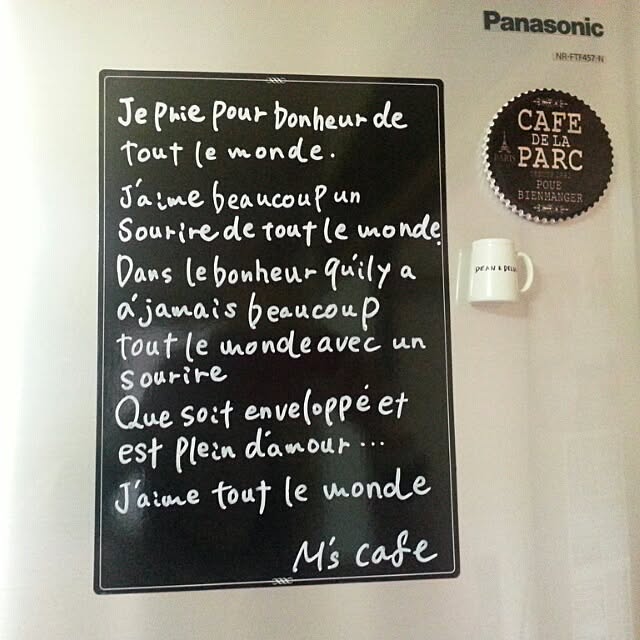 Panasonic
NR-FTF457-N
Je prie pour bonheur de
tout le monde.
J'aime beaucoup un
sourire de tout le monde.
Dans le bonheur qu'il y a
à jamais beaucoup
tout le monde avec un
sourire
Que soit enveloppé et
est plein d'amour...
J'aime tout le monde
M's cafe
CAFE
DE LA
PARIS
PARC
POUE
BIENMANGER
DEAN & DELUCA